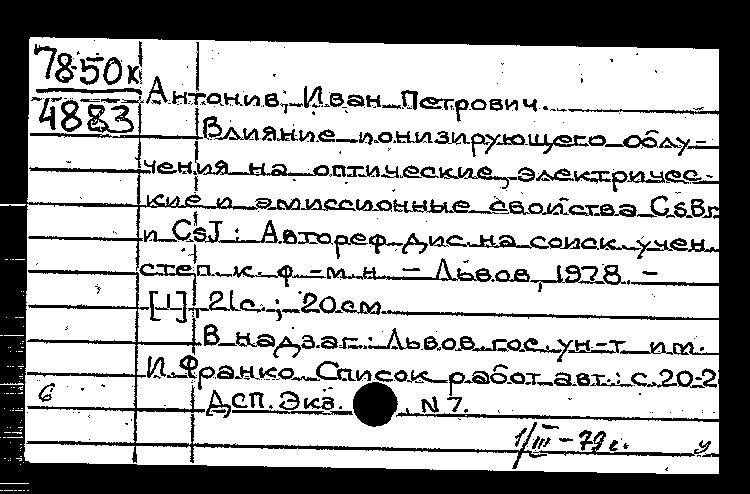 78-50к
4883
Антонив, Иван Петрович.
Влияние ионизирующего облу-
чения на оптические, электричес-
кие и эмиссионные свойства CsBr
и CsJ : Автореф. дис. на соиск. учен.
степ. к. ф.-м. н. – Львов, 1978. –
[1], 21 с. ; 20 см.
В надзаг.: Львов. гос. ун-т им.
И. Франко. Список работ авт.: с. 20-2
ДСП. Экз. , N 7.
6
1/III – 79 г. у